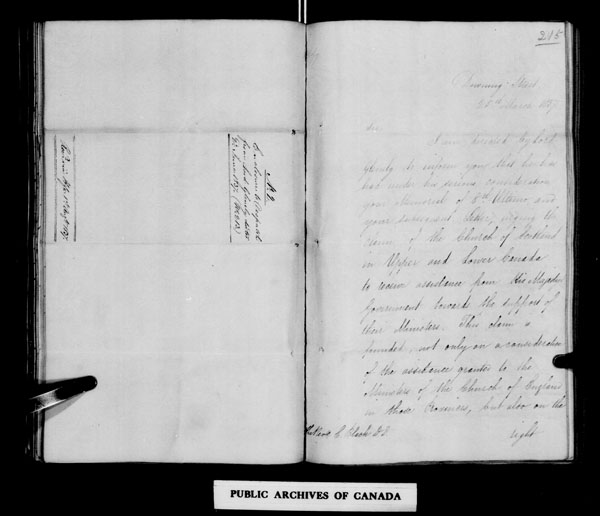 No. 2
Enclosure to Despatch
from Lord Glenelg dated
215
Downing Street
25th March 1837
Sir
I am directed by Lord
Glenelg to inform you that he has
had under his serious consideration
your Memorial of Ultimo, and
your subsequent letter, urging the
claim of the Church of Scotland
in Upper and Lower Canada
to receive assistance from His Majesty's
Government towards the support of
their Ministers. This claim is
founded, not only on a consideration
of the assistance granted to the
Ministers of the Church of England
in those Provinces, but also on the
right
PUBLIC ARCHIVES OF CANADA